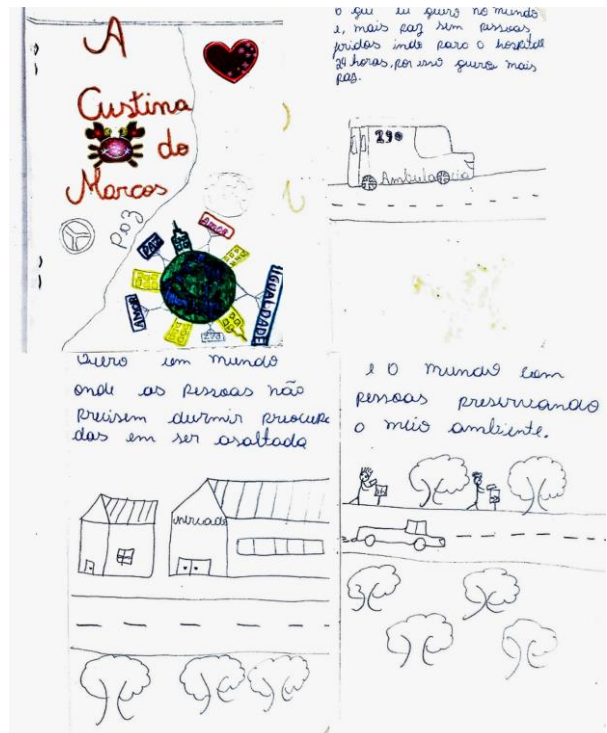 A
Custina
do
Marcos
Paz
Amor
PAZ
AMOR
IGUALDADE
o que eu quero no mundo
e, mais paz sem pessoas
feridas indo para o hospital
24 horas, por isso quero mais
paz.
190
Ambulancia
Quero um mundo
onde as pessoas não
precisem durmir preocupa
das em ser asaltada
mercado
e o mundo com
pessoas preservando
o meio ambiente.